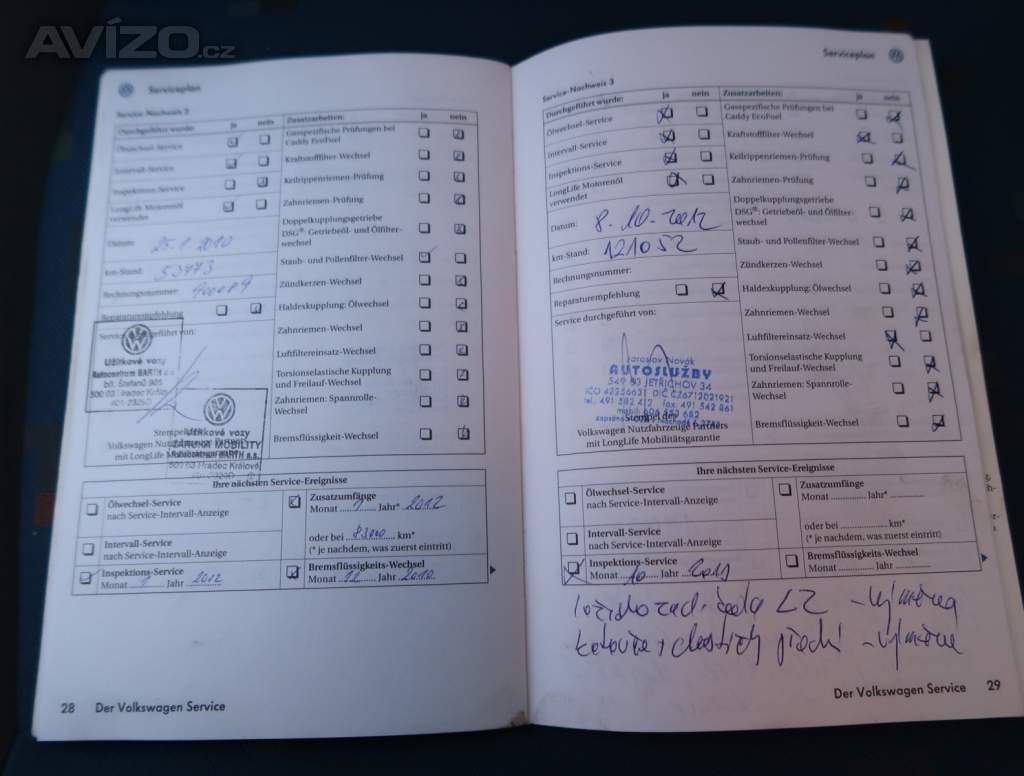 AVÍZO.cz
Serviceplan
Service-Nachweis 3
Durchgeführt wurde: ja nein Zusatzarbeiten: ja nein
Ölwechsel-Service
Intervall-Service
Inspektions-Service
LongLife Motorenöl
verwendet
Datum: 25.1.2010
km-Stand: 52773
Rechnungsnummer:
Reparaturempfehlung
Gasspezifische Prüfungen bei
Caddy EcoFuel
Kraftstofffilter-Wechsel
Keilrippenriemen-Prüfung
Zahnriemen-Prüfung
Doppelkupplungsgetriebe
DSG®: Getriebeöl- und Ölfilter-
wechsel
Staub- und Pollenfilter-Wechsel
Zündkerzen-Wechsel
Haldexkupplung: Ölwechsel
Zahnriemen-Wechsel
Luftfiltereinsatz-Wechsel
Torsionselastische Kupplung
und Freilauf-Wechsel
Zahnriemen: Spannrolle-
Wechsel
Bremsflüssigkeit-Wechsel
Užitkové vozy
Autocentrum BARTH a.s.
Užitkové vozy
ZÁRUKA MOBILITY
Autocentrum BARTH a.s.
Hradec Králové
Volkswagen Nutzfahrzeuge Partners
mit LongLife Mobilitätsgarantie
Ihre nächsten Service-Ereignisse
Ölwechsel-Service
nach Service-Intervall-Anzeige
Intervall-Service
nach Service-Intervall-Anzeige
Inspektions-Service
Monat 1 Jahr 2012
Zusatzumfänge
Monat 1 Jahr* 2012
oder bei 83000 km*
(* je nachdem, was zuerst eintritt)
Bremsflüssigkeits-Wechsel
Monat 12 Jahr 2010
28 Der Volkswagen Service
Serviceplan
Service-Nachweis 3
Durchgeführt wurde: ja nein Zusatzarbeiten: ja nein
Ölwechsel-Service
Intervall-Service
Inspektions-Service
LongLife Motorenöl
verwendet
Datum: 8.10.2012
km-Stand: 121052
Rechnungsnummer:
Reparaturempfehlung
Service durchgeführt von:
Jaroslav Novák
AUTOSLUŽBY
549 83 JETŘICHOV 34
Stempel des
Volkswagen Nutzfahrzeuge Partners
mit LongLife Mobilitätsgarantie
Gasspezifische Prüfungen bei
Caddy EcoFuel
Kraftstofffilter-Wechsel
Keilrippenriemen-Prüfung
Zahnriemen-Prüfung
Doppelkupplungsgetriebe
DSG®: Getriebeöl- und Ölfilter-
wechsel
Staub- und Pollenfilter-Wechsel
Zündkerzen-Wechsel
Haldexkupplung: Ölwechsel
Zahnriemen-Wechsel
Luftfiltereinsatz-Wechsel
Torsionselastische Kupplung
und Freilauf-Wechsel
Zahnriemen: Spannrolle-
Wechsel
Bremsflüssigkeit-Wechsel
Ihre nächsten Service-Ereignisse
Ölwechsel-Service
nach Service-Intervall-Anzeige
Intervall-Service
nach Service-Intervall-Anzeige
Inspektions-Service
Monat 10 Jahr
Zusatzumfänge
Monat Jahr*
oder bei km*
(* je nachdem, was zuerst eintritt)
Bremsflüssigkeits-Wechsel
Monat Jahr
LZ - výměna
přední - výměna
Der Volkswagen Service 29